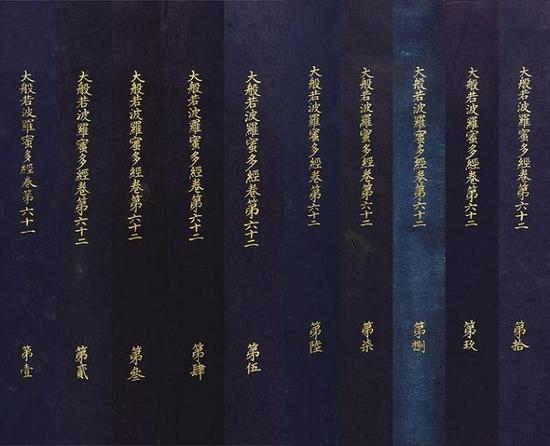 大般若波羅蜜多經卷第六十一
第壹
大般若波羅蜜多經卷第六十二
第貳
大般若波羅蜜多經卷第六十二
第叄
大般若波羅蜜多經卷第六十二
第肆
大般若波羅蜜多經卷第六十二
第伍
大般若波羅蜜多經卷第六十二
第陸
大般若波羅蜜多經卷第六十二
第柒
大般若波羅蜜多經卷第六十二
第捌
大般若波羅蜜多經卷第六十二
第玖
大般若波羅蜜多經卷第六十二
第拾